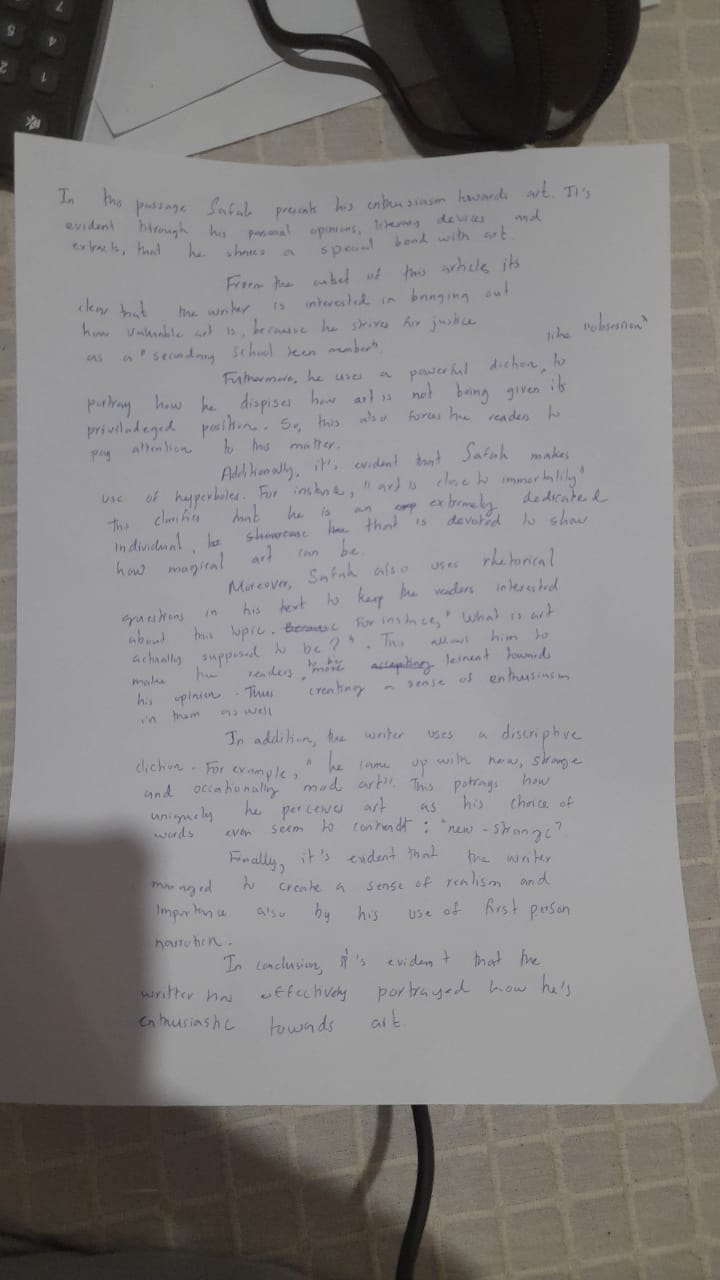 In this passage Safah presents his enthusiasm towards art. It's
evident through his personal opinions, literary devices and
extracts, that he shares a special bond with art.
From the outset of this article its
clear that the writer is interested in bringing out
how valuable art is, because he strives for justice
as a "secondary school teen member".
Futhermore, he uses a powerful diction, like "obsession" to
portray how he dispises how art is not being given its
priviladeged position. So, this also forces the readers to
pay attention to this matter.
Additionally, it's evident that Safah makes
use of hyperboles. For instance, "art is close to immortality"
This clarifies that he is an extremely dedicated
individual, that is devoted to show
how magical art can be.
Moreover, Safah also uses rhetorical
questions in his text to keep the readers interested
about this topic. For instance, "What is art
actually supposed to be?". This allows him to
make the readers to be more leinent towards
his opinion. Thus creating a sense of enthusiasm
in them as well
In addition, the writer uses a discriptive
diction. For example, "he came up with new, strange
and occationally mad art". This potrays how
uniquely he percieves art as his choice of
words even seem to : "new - strange"
Finally, it's evident that the writer
managed to create a sense of realism and
importance also by his use of first person
narration.
In conclusion, it's evident that the
writter has effectively portrayed how he's
enthusiastic towards art.